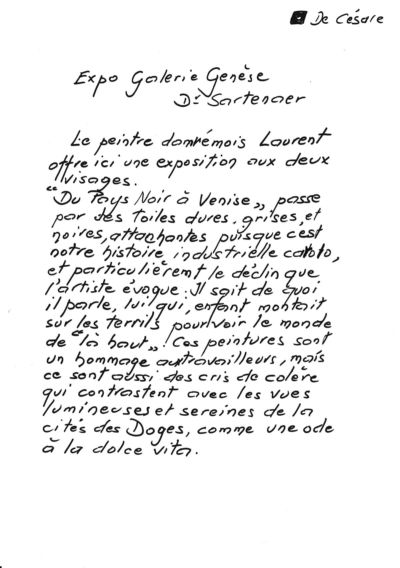 De Césare
Expo Galerie Genèse
Dr Sartenaer
Le peintre damrémois Laurent
offre ici une exposition aux deux
visages.
"Du Pays Noir à Venise" passe
par des toiles dures, grises, et
noires, attachantes puisque c'est
notre histoire industrielle carolo,
et particulièremt le déclin que
l'artiste évoque. Il sait de quoi
il parle, lui qui, enfant montait
sur les terrils pour voir le monde
de "là haut"! Ces peintures sont
un hommage aux travailleurs, mais
ce sont aussi des cris de colère
qui contrastent avec les vues
lumineuses et sereines de la
cités des Doges, comme une ode
à la dolce vita.